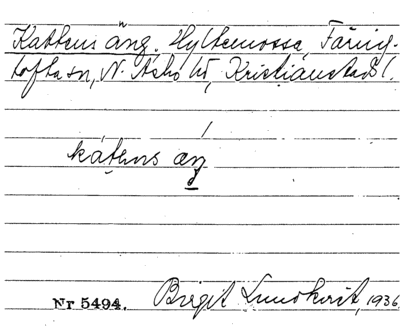 Kattens äng, Hyltemossa, Färing-
tofta sn, N. Åsbo hd, Kristianstads l.
/
káthns æŋ
Nr 5494. Birgit Lundkvist, 1936